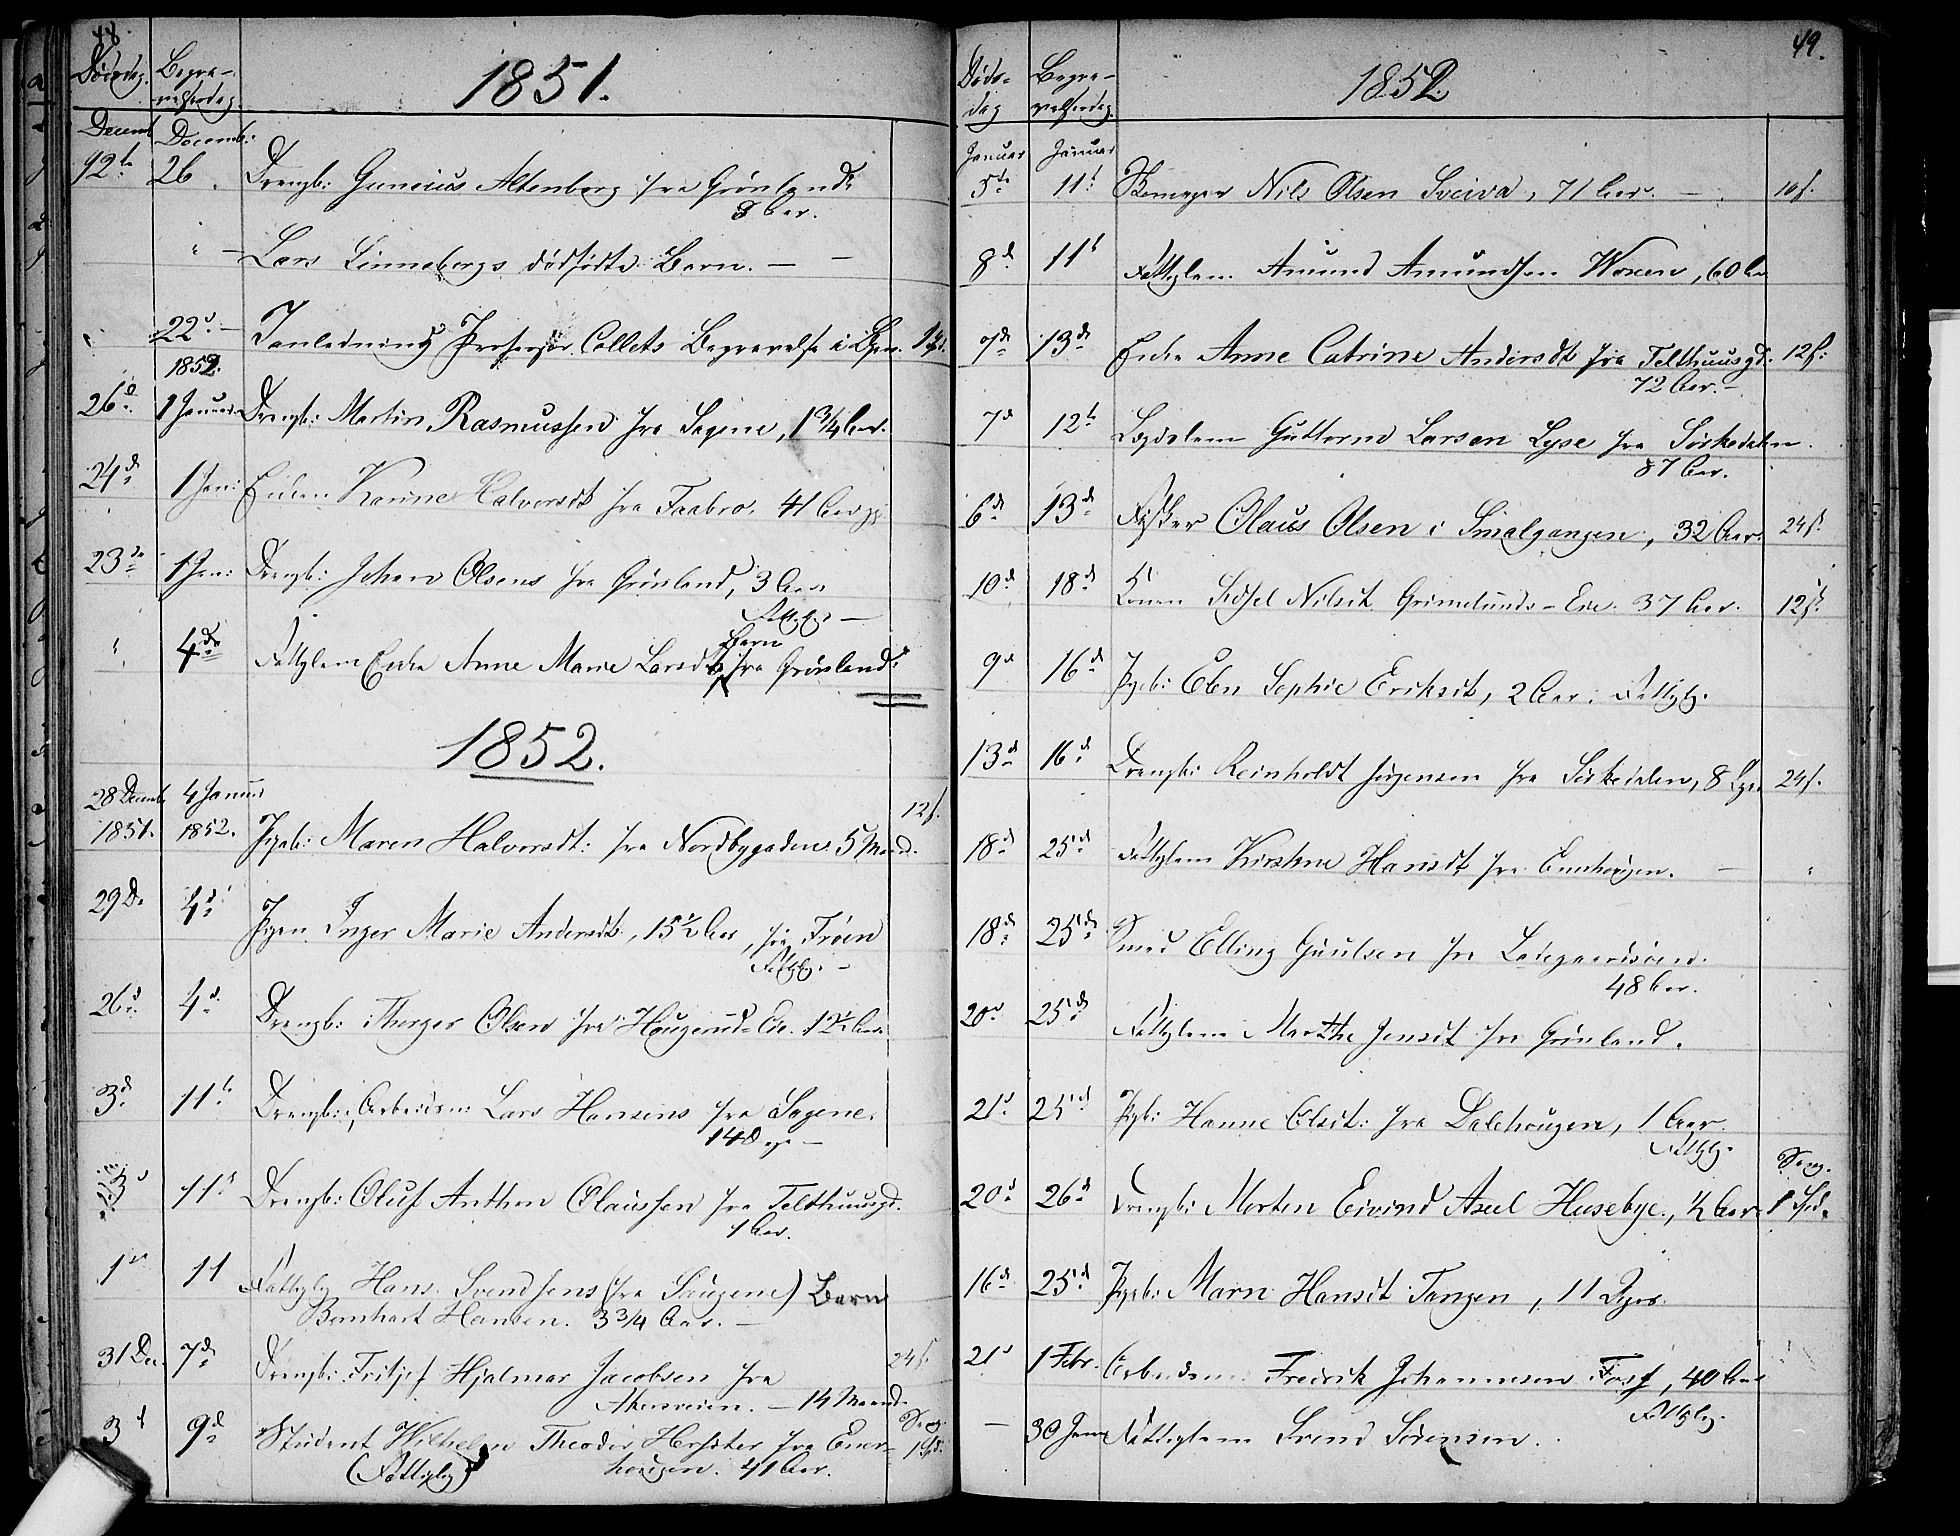 48.
Dødsdag. Begra-
velsesdag.
1851.
Decemb Decemb:
12te 26. Drengb: Gunerius Altenberg fra Grønland
8 Aar.
" — Lars Linnebergs dødfødte Barn. — —
22d — I anledning Professor Collets Begravelse i Chr. 1 Spd.
1852.
26d 1 Januar Drengb: Martin Rasmussen fra Sagene, 1 3/4 Aar.
24d 1 Jan: Enken Karine Halvorsdt fra Faabro. 41 Aar
23de 1 Jan: Drengb: Johan Olsens fra Grønland, 3 Aar
Fattig. —
" 4de Fattiglem Enke Anne Marie Larsdt Barn fra Grønland
1852.
28 Decemb 4 Januar
1851. 1852. Pigeb: Maren Halvorsdt: fra Nordbygaden 5 Maand. 12 s.
29 D. 4d Pigen Inger Marie Andersdt, 15 1/2 Aar, fra Frøen
Fattig. —
26d 4d Drengb: Thorger Olsen fra Haugerud-Eie. 12 1/2 Aar.
3d 11te Drengb:, Arbeidsm: Lars Hansens fra Sagene.
14 Dage —
3d 11te Drengb: Oluf Anthon Olaussen fra Telthuusgd.
1 Aar.
1ste 11 Fattiglem Hans Svendsens (fra Saugene) Barn
Bernhart Hansen. 3 3/4 Aar. —
31 Dec. 7de Drengb: Fritjof Hjalmar Jacobsen fra 24 s.
Akersveien. — 14 Maand.
3d 9de Student Wilhelm Theodor Herfster fra Ener- 1 Spd.
(Fattiglem) hougen. 41 Aar.
49.
Døds-
dag Begra-
velsesdag.
1852.
Januar Januar
5te 11te Bomager Nils Olsen Sveiva, 71 Aar. — 10 s.
8d 11te Fattiglem Amund Amundsen Woxen, 60 Aar
7de 13de Enke Anne Catrine Andersdt fra Telthuusgd. 12 s.
72 Aar. —
7d 12te Lægdslem Guttorm Larsen Lyse fra Sørkedalen.
87 Aar.
6de 13de Fisker Olaus Olsen i Smalgangen, 32 Aar. 24 s.
10d 18de Konen Sidsel Nilsdt. Grimelunds-Eie. 37 Aar. 12 s.
9d 16de Pigeb: Elen Sophie Eriksdt, 2 Aar. Fattig.
13de 16de Drengb: Reinholdt Jørgensen fra Sørkedalen, 8 Dage 24 s.
18de 25de Fattiglem Kirstine Hansdt fra Enerhougen. — "
18de 25de Smed Elling Guulsen fra Ladegaardsøen.
48 Aar.
20d 25de Fattiglem Marthe Jensdt fra Grønland.
21d 25de Pigeb: Hanne Olsdt: fra Dalehougen, 1 Aar.
Fattig.
20de 26de Drengb: Morten Eivind Axel Husebye, 1/2 Aar. 1 Spd.
16de 25de Pigeb: Marn Hansdt Tangen, 11 Dage.
21d 1 Febr. Arbeidsm: Fredrik Johannesen Foss, 40 Aar
Fattig.
— 30 Janr Fattiglem Svend Sørensen.